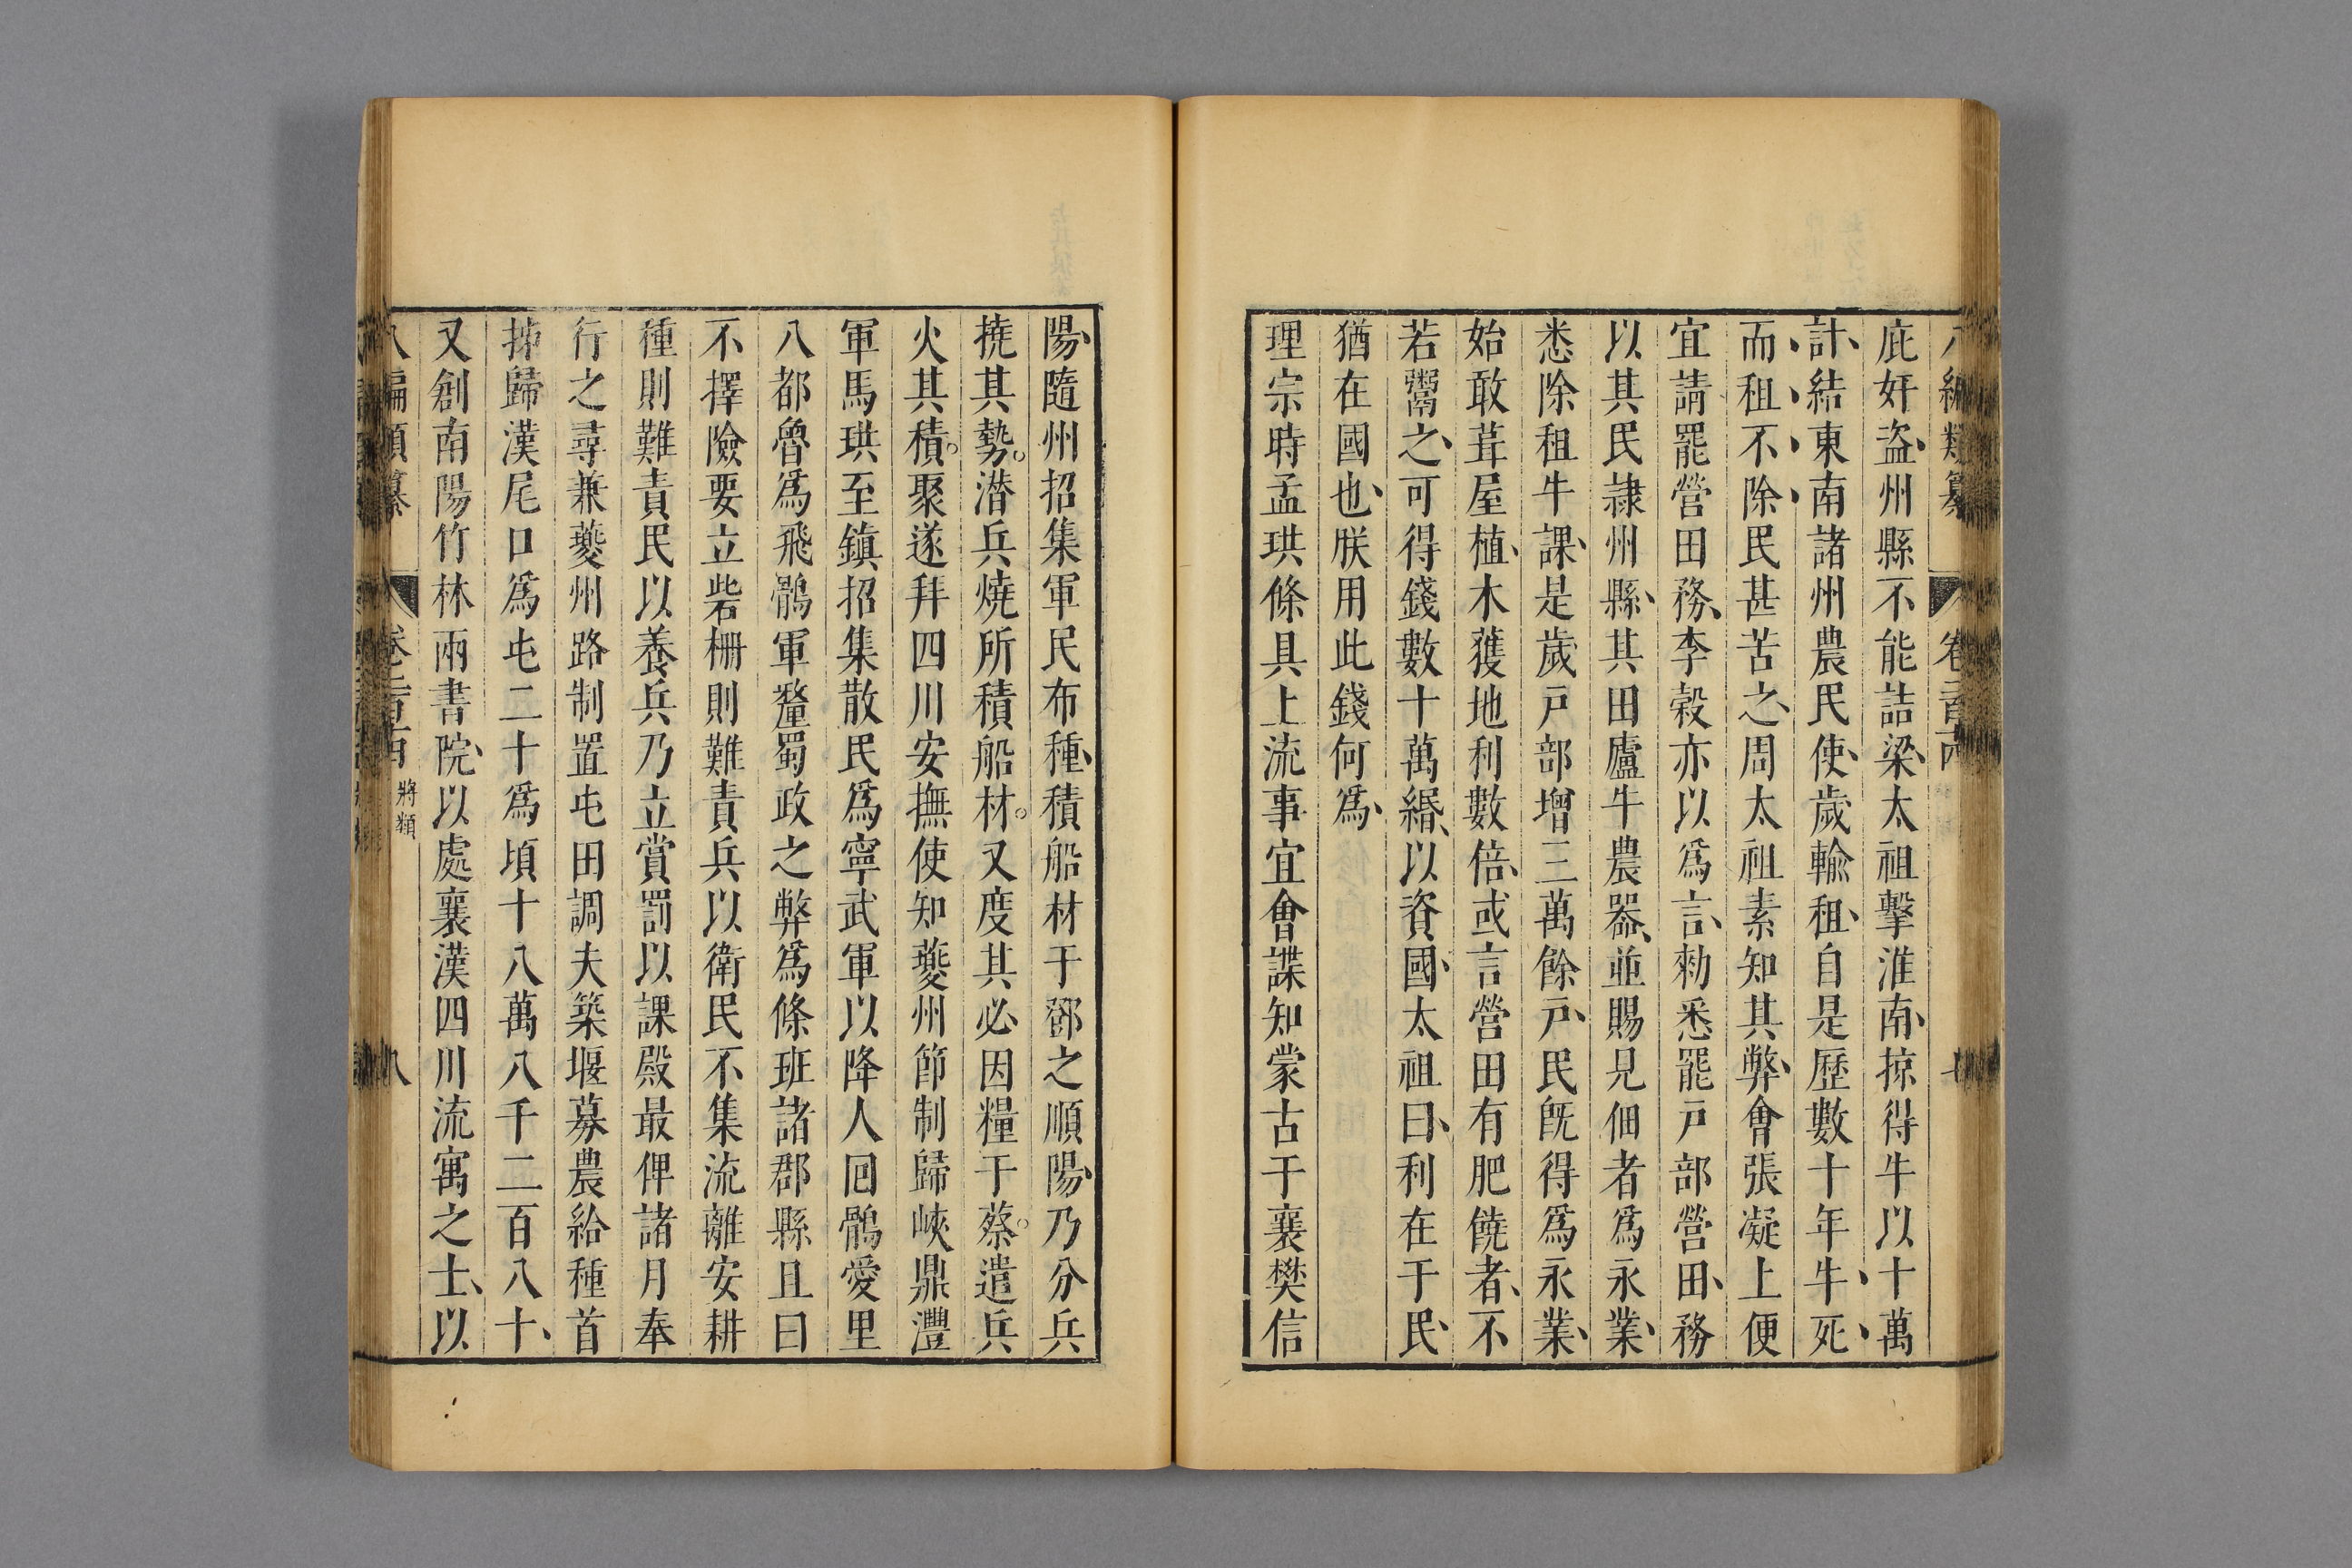 庇奸盜州縣不能詰梁太祖擊淮南掠得牛以十萬
計結東南諸州農民使歲輸租自是歷數十年牛死
而租不除民甚苦之周太祖素知其弊會張凝上便
宜請罷營田務李榖亦以爲言勑悉罷戸部營田務
以其民隷州縣其田廬牛農器並賜見佃者爲永業
悉除租牛課是歲戸部增三萬餘戸民旣得爲永業
始敢葺屋植木獲地利數倍或言營田有肥饒者不
若鬻之可得錢數十萬緡以資國太祖曰利在于民
猶在國也朕用此錢何爲
理宗時孟珙條具上流事宜會諜知蒙古于襄樊信
陽隨州招集軍民布種積船材于鄧之順陽乃分兵
撓其勢潜兵燒所積船材又度其必因糧于蔡遣兵
火其積聚遂拜四川安撫使知夔州節制歸峽鼎灃
軍馬珙至鎮招集散民爲寧武軍以降人回鶻愛里
八都魯爲飛鶻軍釐蜀政之弊爲條班諸郡縣且曰
不擇險要立砦柵則難責兵以衛民不集流離安耕
種則難責民以養兵乃立賞罰以課殿最俾諸月奉
行之尋兼夔州路制置屯田調夫築堰募農給種首
秭歸漢尾口爲屯二十爲頃十八萬八千二百八十
又創南陽竹林兩書院以處襄漢四川流寓之士以
八編類纂
將類
八